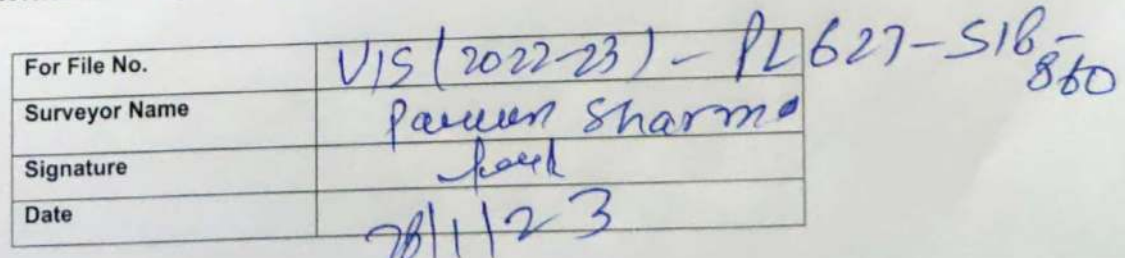 For File No. VIS (2022-23) - PL627-SIB-
860
Surveyor Name Parveen Sharma
Signature
Date 28/1/23